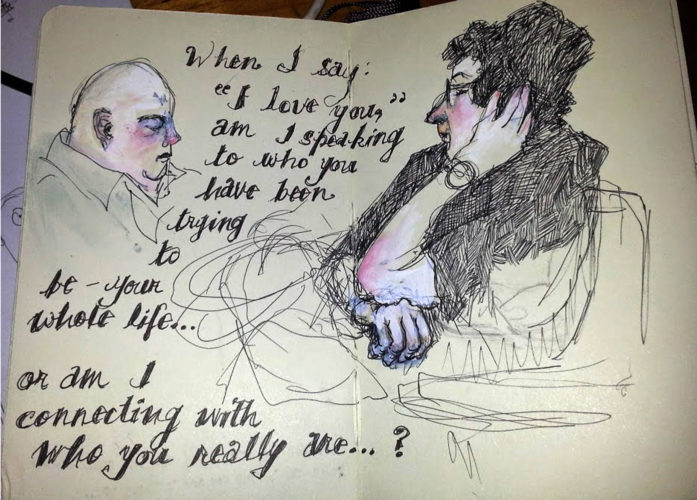 When I say:
"I love you,"
am I speaking
to who you
have been
trying
to
be - your
whole life...
or am I
connecting with
who you really are... ?